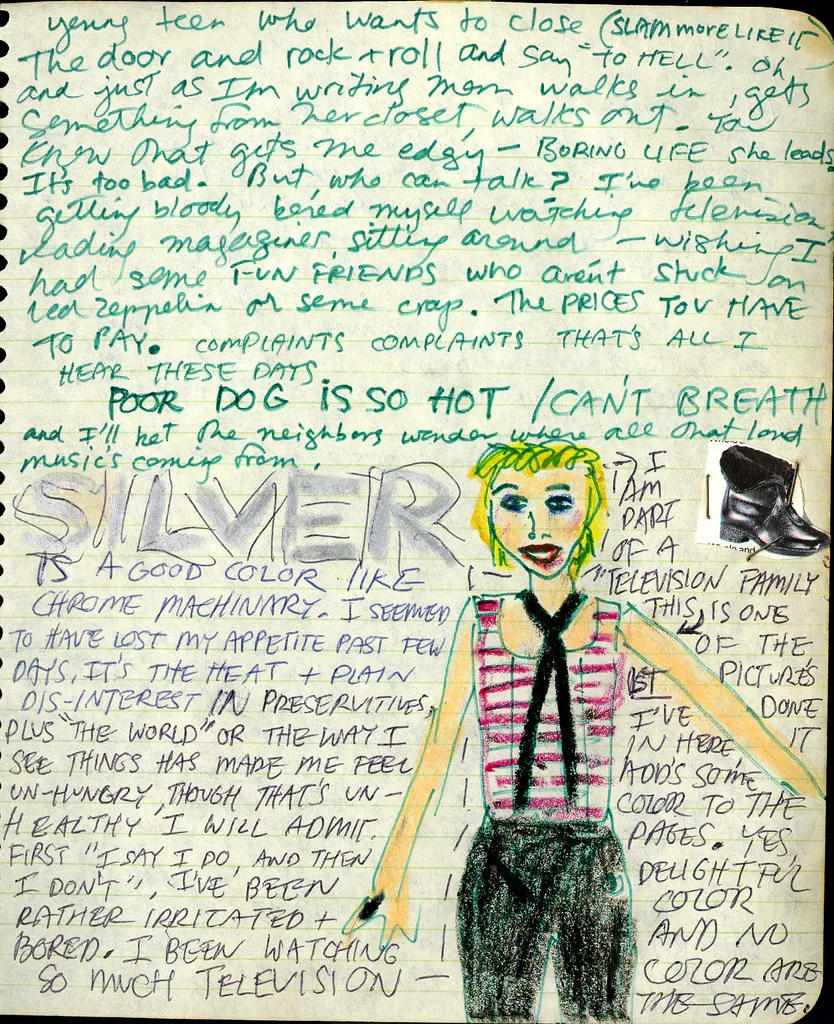 young teen who wants to close (SLAM MORE LIKE IT
The door and rock + roll and say "TO HELL". Oh
and just as I'm writing mom walks in, gets
something from her closet, walks out. You
know that gets me edgy — BORING LIFE she leads.
It's too bad. But, who can talk? I've been
getting bloody bored myself watching television,
reading magazines, sitting around — wishing I
had some FUN FRIENDS who aren't stuck on
led zeppelin or some crap. The PRICES YOU HAVE
TO PAY. COMPLAINTS COMPLAINTS THAT'S ALL I
HEAR THESE DAYS
POOR DOG IS SO HOT / CAN'T BREATH
and I'll bet the neighbors wonder where all that loud
music's coming from.
SILVER
IS A GOOD COLOR LIKE
CHROME MACHINARY. I SEEMED
TO HAVE LOST MY APPETITE PAST FEW
DAYS, IT'S THE HEAT + PLAIN
DIS-INTEREST IN PRESERVITIVES,
PLUS "THE WORLD" OR THE WAY I
SEE THINGS HAS MADE ME FEEL
UN-HUNGRY, THOUGH THAT'S UN-
HEALTHY I WILL ADMIT.
FIRST "I SAY I DO, AND THEN
I DON'T", I'VE BEEN
RATHER IRRITATED +
BORED. I BEEN WATCHING
SO MUCH TELEVISION —
I
AM
PART
OF A
"TELEVISION FAMILY
THIS IS ONE
OF THE
PICTURE'S
DONE
IT
1ST
I'VE
IN HERE
ADD'S SOME
COLOR TO THE
PAGES. YES,
DELIGHTFUL
COLOR
AND NO
COLOR ARE
THE SAME.